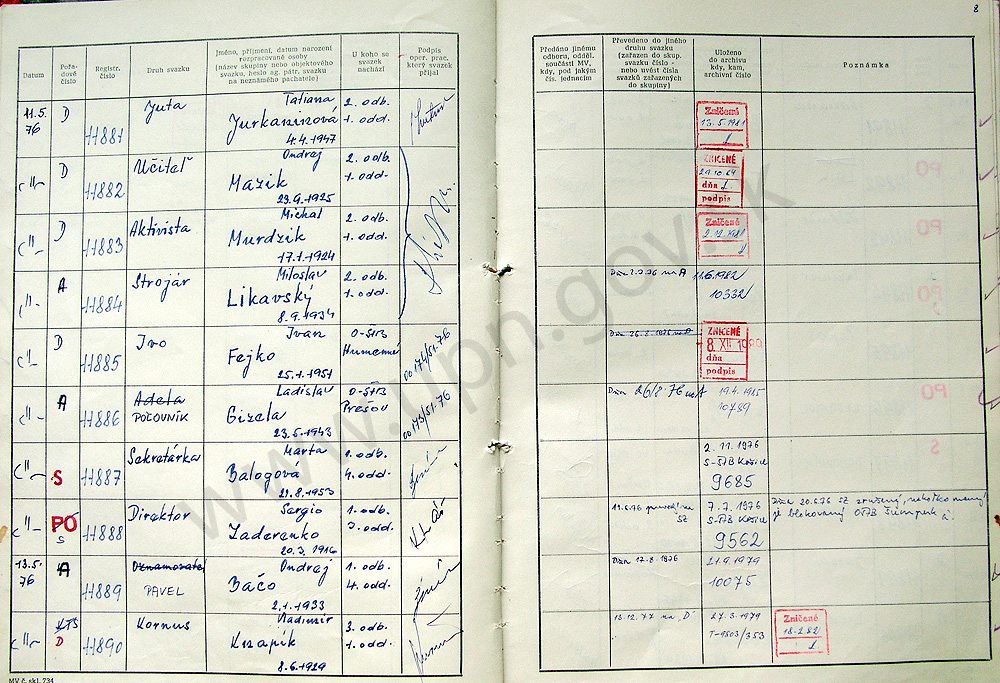 8
Datum
Pořadové číslo
Registr. číslo
Druh svazku
Jméno, příjmení, datum narození
rozpracované osoby
(název skupiny nebo objektového
svazku, heslo ag. pátr. svazku
na neznámého pachatele)
U koho se
svazek
nachází
Podpis
oper. prac.
který svazek
přijal
Předáno jinému
odboru, odděl.
součásti MV,
kdy, pod jakým
čís. jednacím
Převedeno do jiného
druhu svazku
(zařazen do skup.
svazku číslo -
nebo uvést čísla
svazků zařazených
do skupiny)
Uloženo
do archivu
kdy, kam,
archivní číslo
Poznámka
11.5. 76 D 11881 Juta Tatiana 2. odb.
Jurkaninová 1. odd.
4.4.1947
Zničené
13.5.1981
1
D 11882 Učiteľ Ondrej 2. odb.
Mazik 1. odd.
29.9.1925
ZNIČENÉ
dňa
podpis
D 11883 Aktivista Michal 2. odb.
Murdzik 1. odd.
17.1.1924
Zničené
2.12.1981
A 11884 Strojár Miloslav 2. odb.
Likavský 1. odd.
8.9.1934
11.6.1982
10332
D 11885 Ivo Ivan O-ŠTB
Fejko Humenné
25.1.1951
ZNIČENÉ
8 XII
dňa
podpis
A 11886 Adela Ladislav O-ŠTB
POĽOVNÍK Gizela Prešov
23.5.1943
26/8 76 na A 19.4.1985
10789
S 11887 Sekretárka Marta 1. odb.
Balogova 4. odd.
21.8.1953
2. 11. 1976
S-ŠTB Košice
9685
PO S 11888 Direktor Sergio 1. odb.
Zaderenko 2. odd.
20.3.1916
7.7.1976
S-ŠTB Košice
9562
13.5. 76 A 11889 Oznamovateľ Ondrej 1. odb.
PAVEL Bačo 4. odd.
2.1.1933
Dňa 17.8.1976 21.9.1979
10075
KTŠ D 11890 Kornus Vladimír 3. odb.
Knapik 1. odd.
8.6.1929
13.12.77 na „D" 27.3.1979
T-9503/353
Zničené
18.2.82
1
MV č. skl. 734
www.upn.gov.sk